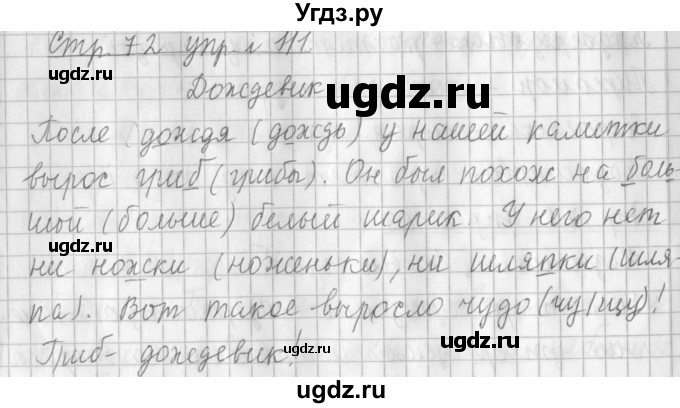 Угдз.ру
Стр. 72 упр. 111.
ugdz.ru
ugdz.ru
Дождевик
ugdz.ru
После дождя (дождь) у нашей калитки
ugdz.ru
вырос гриб (грибы). Он был похож на боль-
шой (больше) белый шарик. У него нет
ugdz.ru
ugdz.ru
ни ножки (ноженьки), ни шляпки (шля-
па). Вот такое выросло чудо (чу/щу)!
ugdz.ru
Гриб - дождевик!
ugdz.ru
ugdz.ru